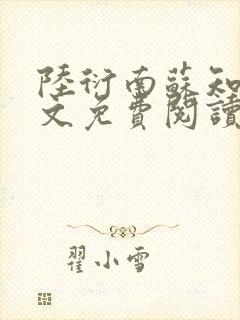 陸衍南蘇知
文免費閱讀
翟小雪